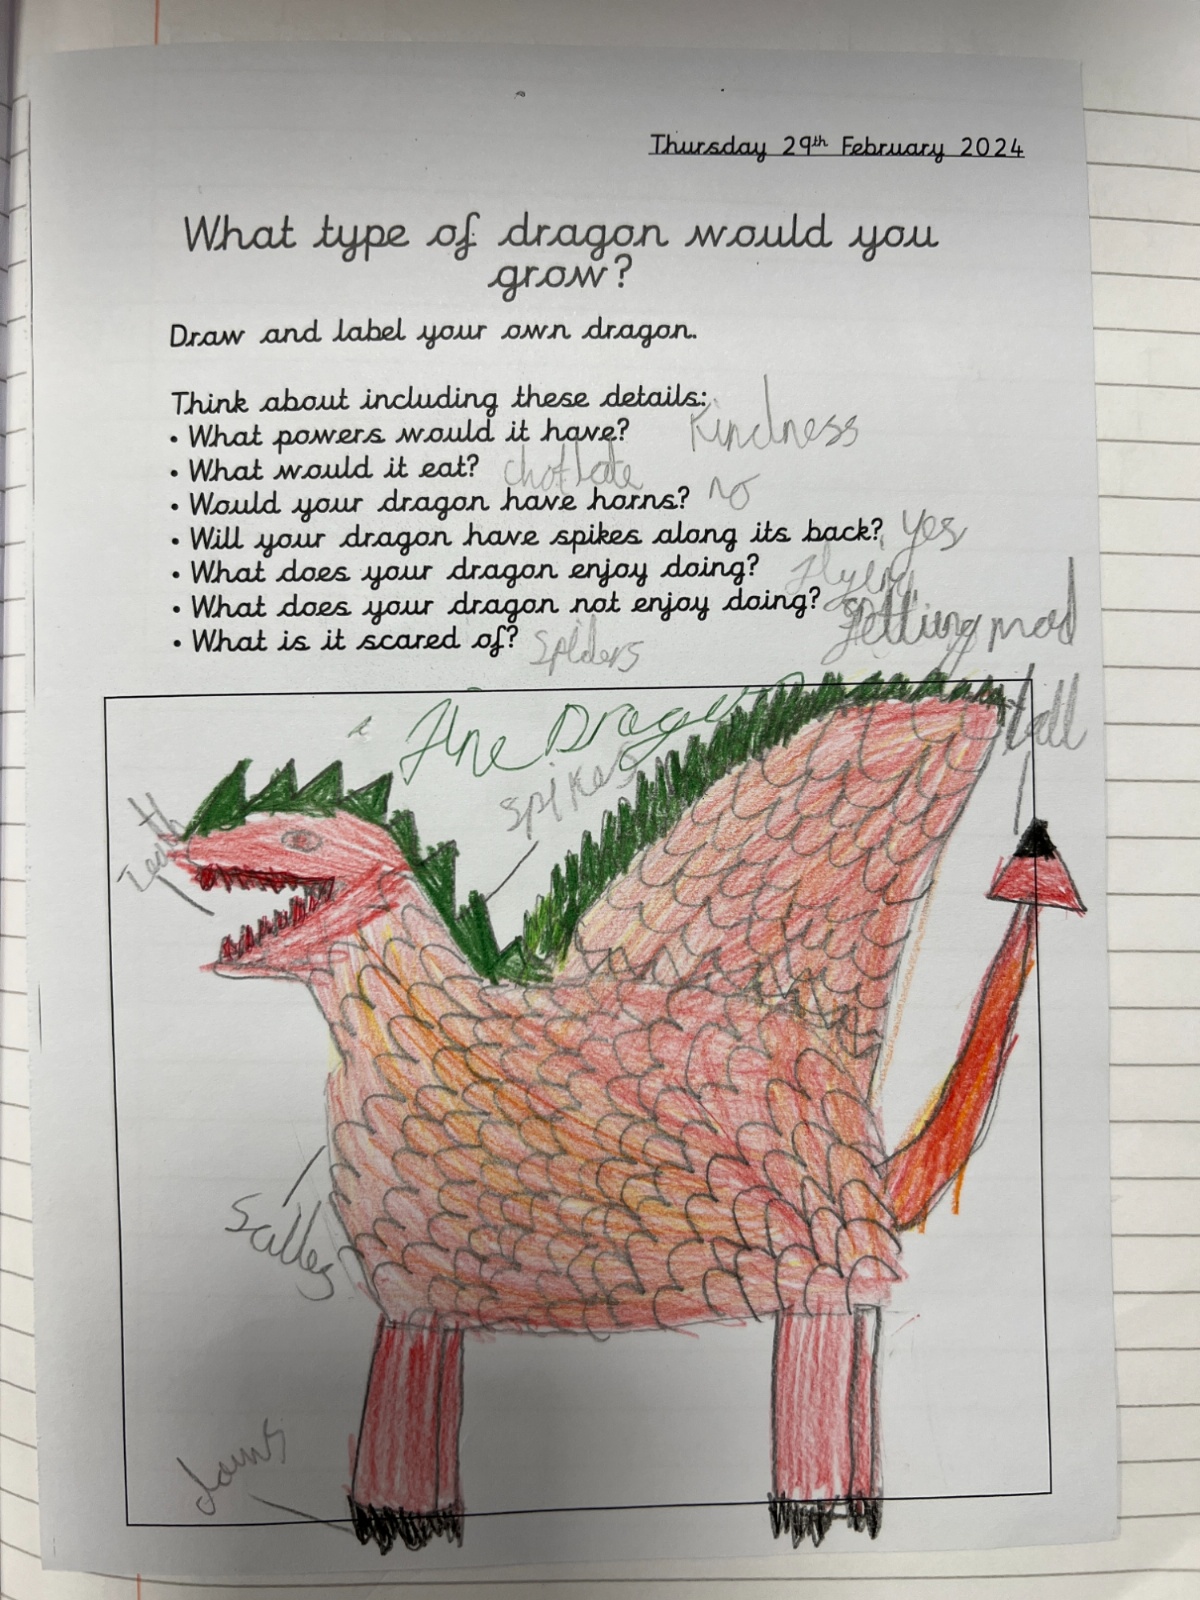 Thursday 29th February 2024
What type of dragon would you
grow?
Draw and label your own dragon.
Think about including these details:
• What powers would it have? Kindness
• What would it eat? choflate
• Would your dragon have horns? no
• Will your dragon have spikes along its back? yes
• What does your dragon enjoy doing? flying
• What does your dragon not enjoy doing? getting mad
• What is it scared of? Spiders
Dragon
tall
spikes
Teeth
Scilles